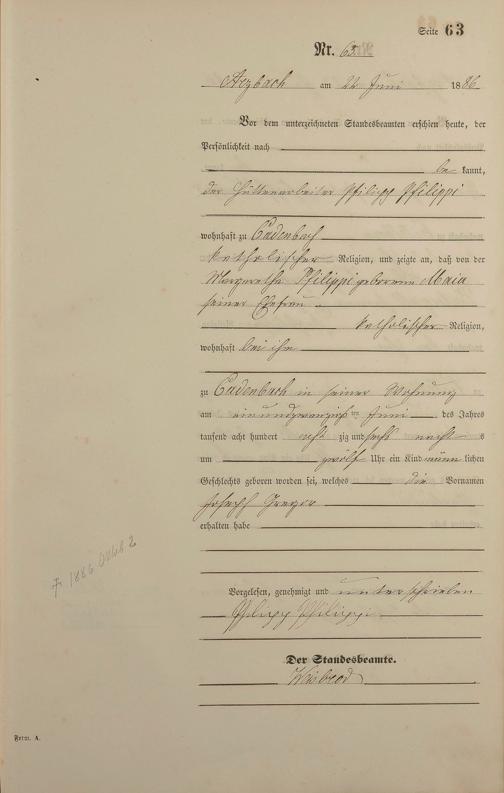 Seite 63
Nr. 63.
Arzbach am 22 Juni 1886
Vor dem unterzeichneten Standesbeamten erschien heute, der
Persönlichkeit nach
be kannt,
der Hüttenarbeiter Philipp Philippi
wohnhaft zu Cadenbach
katholischer Religion, und zeigte an, daß von der
Margaretha Philippi geborene Maia
seiner Ehefrau
katholischer Religion,
wohnhaft bei ihm
zu Cadenbach in seiner Wohnung
am einundzwanzigsten Juni des Jahres
tausend acht hundert acht zig und sechs nachts
um zwölf Uhr ein Kind männ lichen
Geschlechts geboren worden sei, welches die Vornamen
Joseph Gregor
erhalten habe
Vorgelesen, genehmigt und unterschrieben
Philipp Philippi
Der Standesbeamte.
Weisbrod
Form. A.